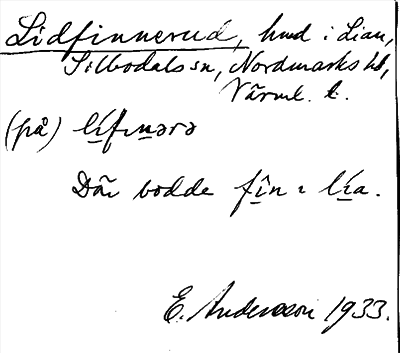 Lidfinnerud, hmd i Lian,
Silbodals sn, Nordmarks hd,
Värml. l.
(på) lífinərə
Där bodde fîn ɩ lía.
E. Andersson 1933.